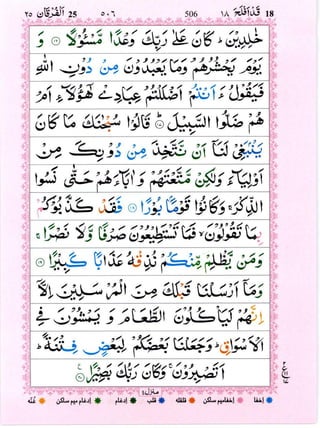 ٢٥ اَلْفُرْقَان 25 ٥٠٦ 506 قَدْ اَفْلَحَ ١٨ 18
خٰلِدِيْنَ ؕ كَانَ عَلٰى رَبِّكَ وَعْدًا مَّسْـُٔوْلًا ﴿۱۶﴾ وَ
يَوْمَ يَحْشُرُهُمْ وَمَا يَعْبُدُوْنَ مِنْ دُوْنِ اللّٰهِ
فَيَقُوْلُ ءَاَنْتُمْ اَضْلَلْتُمْ عِبَادِيْ هٰٓؤُلَآءِ اَمْ
هُمْ ضَلُّوا السَّبِيْلَ ﴿۱۷﴾ قَالُوْا سُبْحٰنَكَ مَا كَانَ
يَنْۢبَغِيْ لَنَاۤ اَنْ نَّتَّخِذَ مِنْ دُوْنِكَ مِنْ
اَوْلِيَآءَ وَلٰكِنْ مَّتَّعْتَهُمْ وَاٰبَآءَهُمْ حَتّٰى نَسُوا
الذِّكْرَ ۚ وَكَانُوْا قَوْمًۢا بُوْرًا ﴿۱۸﴾ فَقَدْ كَذَّبُوْكُمْ
بِمَا تَقُوْلُوْنَ ۙ فَمَا تَسْتَطِيْعُوْنَ صَرْفًا وَّلَا نَصْرًا ۚ
وَمَنْ يَّظْلِمْ مِّنْكُمْ نُذِقْهُ عَذَابًا كَبِيْرًا ﴿۱۹﴾
وَمَاۤ اَرْسَلْنَا قَبْلَكَ مِنَ الْمُرْسَلِيْنَ اِلَّاۤ
اِنَّهُمْ لَيَاْكُلُوْنَ الطَّعَامَ وَ يَمْشُوْنَ فِي
الْاَسْوَاقِ ؕ وَجَعَلْنَا بَعْضَكُمْ لِبَعْضٍ فِتْنَةً ؕ
اَتَصْبِرُوْنَ ۚ وَكَانَ رَبُّكَ بَصِيْرًا ﴿۲۰﴾
منزل ٤
اخفا اخفا میم ساکن قلقلہ قلب ادغام ادغام میم ساکن غنہ